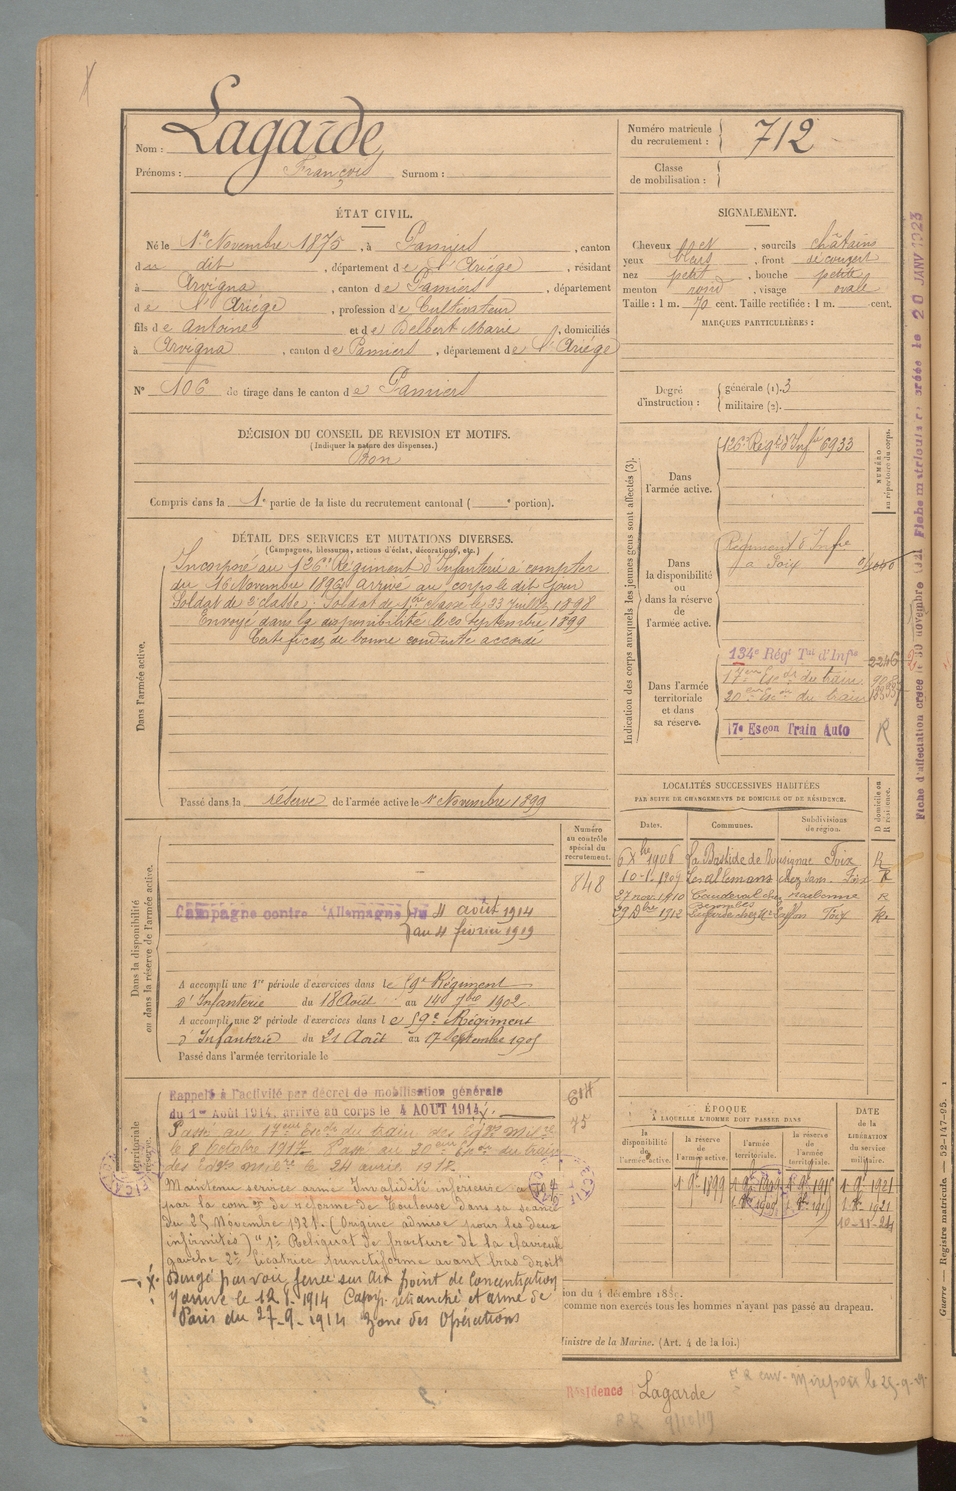 Nom : Lagarde
Prénoms : François Surnom :
Numéro matricule du recrutement : 712
Classe de mobilisation :
ÉTAT CIVIL.
Né le 1er Novembre 1875, à Pamiers, canton
du dit, département de l'Ariège, résidant
à Arvigna, canton de Pamiers, département
de l'Ariège, profession de Cultivateur
fils de Antoine et de Delbert Marie, domiciliés
à Arvigna, canton de Pamiers, département de l'Ariège
N° 106 de tirage dans le canton de Pamiers
DÉCISION DU CONSEIL DE REVISION ET MOTIFS.
(Indiquer la nature des dispenses.)
Bon
Compris dans la 1e partie de la liste du recrutement cantonal ( e portion).
SIGNALEMENT.
Cheveux sourcils châtains
yeux bleus, front découvert
nez petit, bouche petite
menton rond, visage ovale
Taille : 1 m. 70 cent. Taille rectifiée : 1 m. cent.
MARQUES PARTICULIÈRES :
Degré d'instruction : générale (1). 3
militaire (2).
DÉTAIL DES SERVICES ET MUTATIONS DIVERSES.
(Campagnes, blessures, actions d'éclat, décorations, etc.)
Dans l'armée active.
Incorporé au 126e Régiment d'Infanterie à compter
du 16 Novembre 1896 arrivé au corps le dit jour
Soldat de 2e classe. Soldat de 1ère classe le 23 Juillet 1898
Envoyé dans la disponibilité le 20 Septembre 1899
Certificat de bonne conduite accordé
Passé dans la réserve de l'armée active le 1er Novembre 1899
Indication des corps auxquels les jeunes gens sont affectés (3).
NUMÉRO au répertoire du corps.
Dans l'armée active.
126e Régt d'Infie 6933
Dans la disponibilité ou dans la réserve de l'armée active.
Régiment d'Infie
à Foix
Dans l'armée territoriale et dans sa réserve.
134e Régt Tal d'Infie 2246
17eme Esc. du train
20eme Esc. du train
17e Escon Train Auto R
Fiche matriculaire créée le 20 JANV 1923
LOCALITÉS SUCCESSIVES HABITÉES
PAR SUITE DE CHANGEMENTS DE DOMICILE OU DE RÉSIDENCE.
Dates. Communes. Subdivisions de région. D domicile ou R résidence.
6 Xbre 1906 La Bastide de Foix R
10-1-1907 Les Allemans Foix R
27 nov. 1910 Narbonne R
29 Xbre 1912 Foix R
Dans la disponibilité ou dans la réserve de l'armée active.
Numéro au contrôle spécial du recrutement.
848
Campagne contre l'Allemagne du 4 août 1914
au 4 février 1919
A accompli une 1re période d'exercices dans le 59e Régiment
d'Infanterie du 18 Août au 14 7bre 1902.
A accompli une 2e période d'exercices dans le 59e Régiment
d'Infanterie du 21 Août au 17 Septembre 1905
Passé dans l'armée territoriale le
Rappelé à l'activité par décret de mobilisation générale
du 1er Août 1914, arrivé au corps le 4 AOUT 1914
Passé au 17eme Esc. du train des Eqges Mil.
le 8 Octobre 1917. Passé au 20eme Esc. du train
des Eqges Milres le 24 avril 1918.
Maintenu service armé Invalidité inférieure à
par la comon de réforme de Toulouse dans sa séance
du 25 Novembre 1921. (Origine admise pour les deux
infirmités) "1° Reliquat de fracture de la clavicule
gauche 2° Cicatrice punctiforme avant bras droit
Dirigé par voie ferrée sur point de concentration
Y arrive le 1914 Camp retranché et armé de
Paris du 27-9-1914 zone des Opérations
ÉPOQUE
À LAQUELLE L'HOMME DOIT PASSER DANS
DATE DE LA LIBÉRATION du service militaire.
la disponibilité de l'armée active. la réserve de l'armée active. l'armée territoriale. la réserve de l'armée territoriale.
1 9bre 1899
1 9bre 1921
10-11-24
comme non exercés tous les hommes n'ayant pas passé au drapeau.
Ministre de la Marine. (Art. 4 de la loi.)
Résidence Lagarde
Guerre — Registre matricule. — 52-147-95.